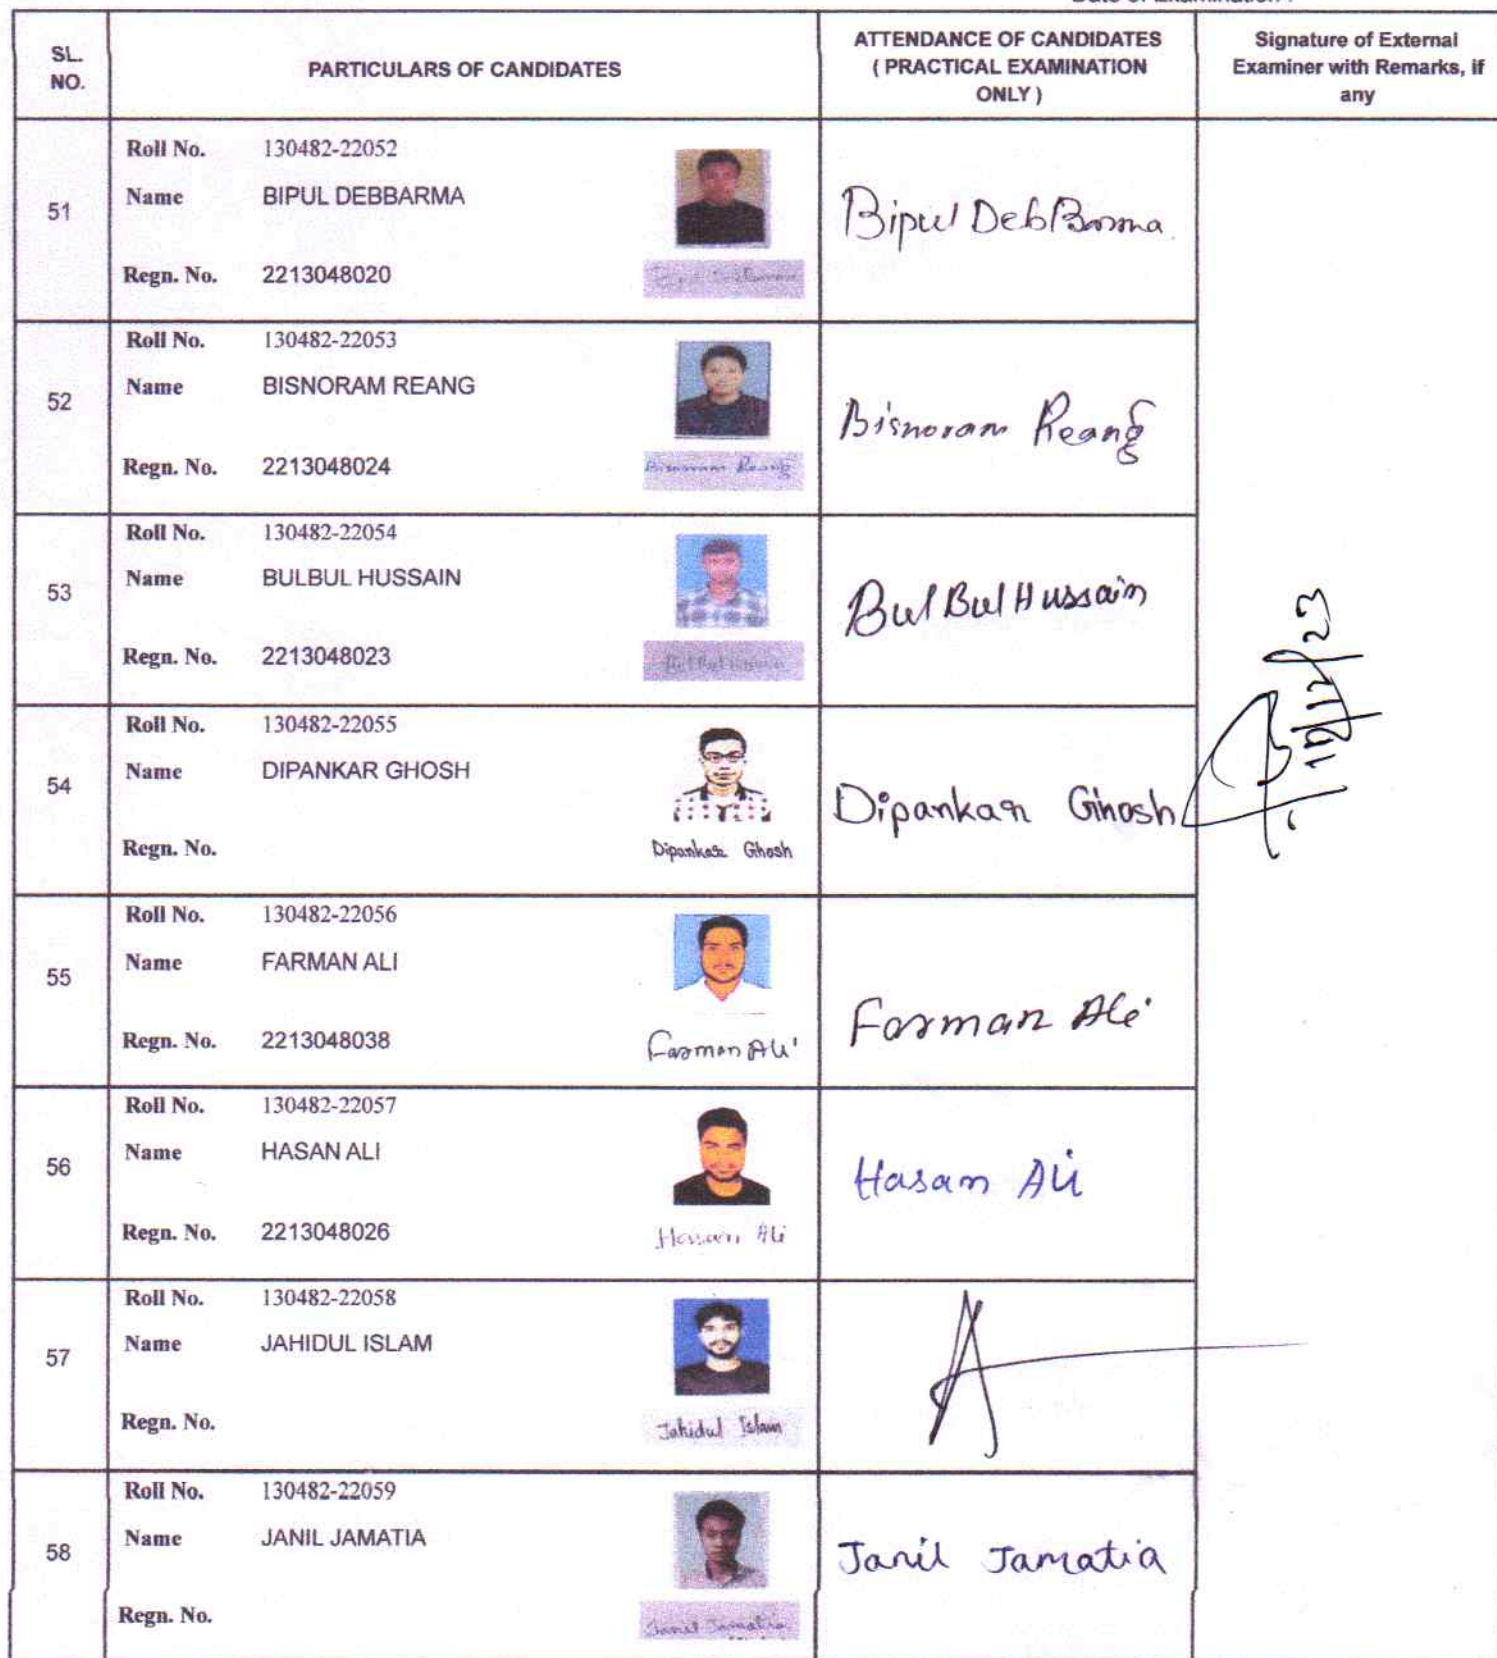 SL. NO. PARTICULARS OF CANDIDATES ATTENDANCE OF CANDIDATES ( PRACTICAL EXAMINATION ONLY ) Signature of External Examiner with Remarks, if any
51
Roll No. 130482-22052
Name BIPUL DEBBARMA
Regn. No. 2213048020
Bipul DebBarma
52
Roll No. 130482-22053
Name BISNORAM REANG
Regn. No. 2213048024
Bisnoram Reang
Bisnoram Reang
53
Roll No. 130482-22054
Name BULBUL HUSSAIN
Regn. No. 2213048023
BulBul Hussain
54
Roll No. 130482-22055
Name DIPANKAR GHOSH
Regn. No.
Dipankar Ghosh
Dipankar Ghosh
55
Roll No. 130482-22056
Name FARMAN ALI
Regn. No. 2213048038
Farman Ali
Farman Ali
56
Roll No. 130482-22057
Name HASAN ALI
Regn. No. 2213048026
Hassan Ali
Hasan Ali
57
Roll No. 130482-22058
Name JAHIDUL ISLAM
Regn. No.
Jahidul Islam
A
58
Roll No. 130482-22059
Name JANIL JAMATIA
Regn. No.
Janil Jamatia
Janil Jamatia